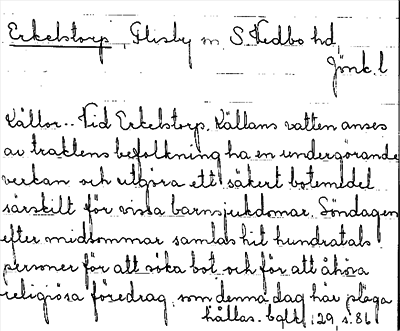 Erkelstorp, Flisby sn S. Vedbo hd,
Jönk. l
Källor.. Vid Erkelstorp. Källans vatten anses
av traktens befolkning ha en undergörande
verkan och utgöra ett säkert botemedel
särskilt för vissa barnsjukdomar. Söndagen
efter midsommar samlas hit hundratals
personer för att söka bot och för att åhöra
religiösa föredrag, som denna dag här pläga
hållas. 29, s. 86